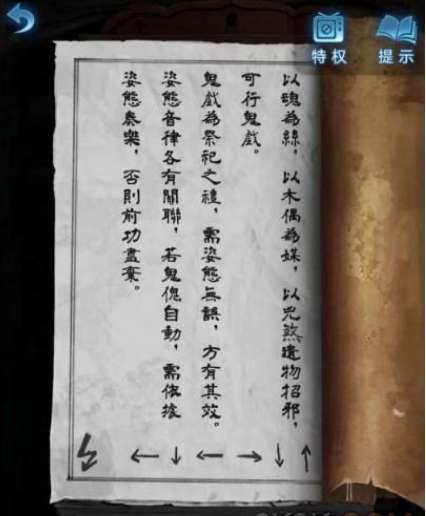 特权
提示
以魂為絲，以木偶為媒，以兇煞遺物招邪，
可行鬼戲。
鬼戲為祭祀之禮，需姿態無誤，方有其效。
姿態音律各有關聯，若鬼傀自動，需依據
姿態奏樂，否則前功盡棄。